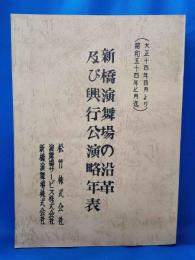 (大正十四年四月より
昭和五十四年七月迄)
新橋演舞場の沿革
及び興行公演略年表
松竹株式会社
演舞場サービス株式会社
新橋演舞場株式会社